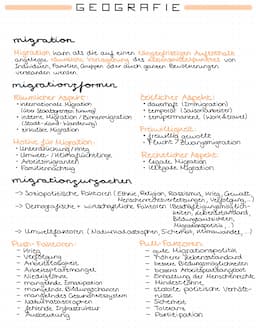 GEOGRAFIE
migration
Migration kann als die auf einen längerfristigen Aufenthalt
angelegte räumliche Verlagerung des Lebensmittelpunktes von
Individuen, Familien, Gruppen oder auch ganzen Bevölkerungen
verstanden werden.
migrationsformen
Räumlicher Aspekt:
- internationale Migration
(über Staatsgrenzen)
- interne Migration / Binnenmigration
(Stadt-Land-Wanderung)
- zirkuläre Migration
Motive für Migration:
- Unterdrückung / Krieg
- Umwelt- / Klimaflüchtlinge
- Arbeitsmigranten
- Familiennachzug
Zeitlicher Aspekt:
- dauerhaft (Immigration)
- temporal (Saisonarbeiter)
- semipermanent (Work+travel)
Freiwilligkeit:
- freiwillig gewollt
- Flucht / Zwangsmigration
Rechtlicher Aspekt:
- legale Migration
- illegale Migration
migrationsursachen
→ Soziopolitische Faktoren (Ethnie, Religion, Rassismus, Krieg, Gewalt,
Menschenrechtsverletzungen, Verfolgung, ...)
→ Demografische + wirtschaftliche Faktoren (Beschäftigungsmöglich-
keiten, Lebensstandard,
Bildungsaussichten,
)
→ Umweltfaktoren (Naturkatastrophen, Sicherheit, Klimawandel, ...)
Push-Faktoren:
- Krieg
- Verfolgung
- Arbeitslosigkeit
- Arbeitsplatzmangel
- Niedriglöhne
- mangelnde Emanzipation
- mangelnde Bildungschancen
- mangelndes Gesundheitssystem
- Naturkatastrophen
- fehlende Infrastruktur
- Ausbeutung
Pull-Faktoren:
- gute Migrationspolitik
- höherer Lebensstandard
- bessere Bildungsmöglichkeiten
- besseres Arbeitsplatzangebot
- Einhaltung der Menschenrechte
- Mindestlöhne
- stabile politische Verhält-
nisse
- Sicherheit
- Toleranz
- Partizipation